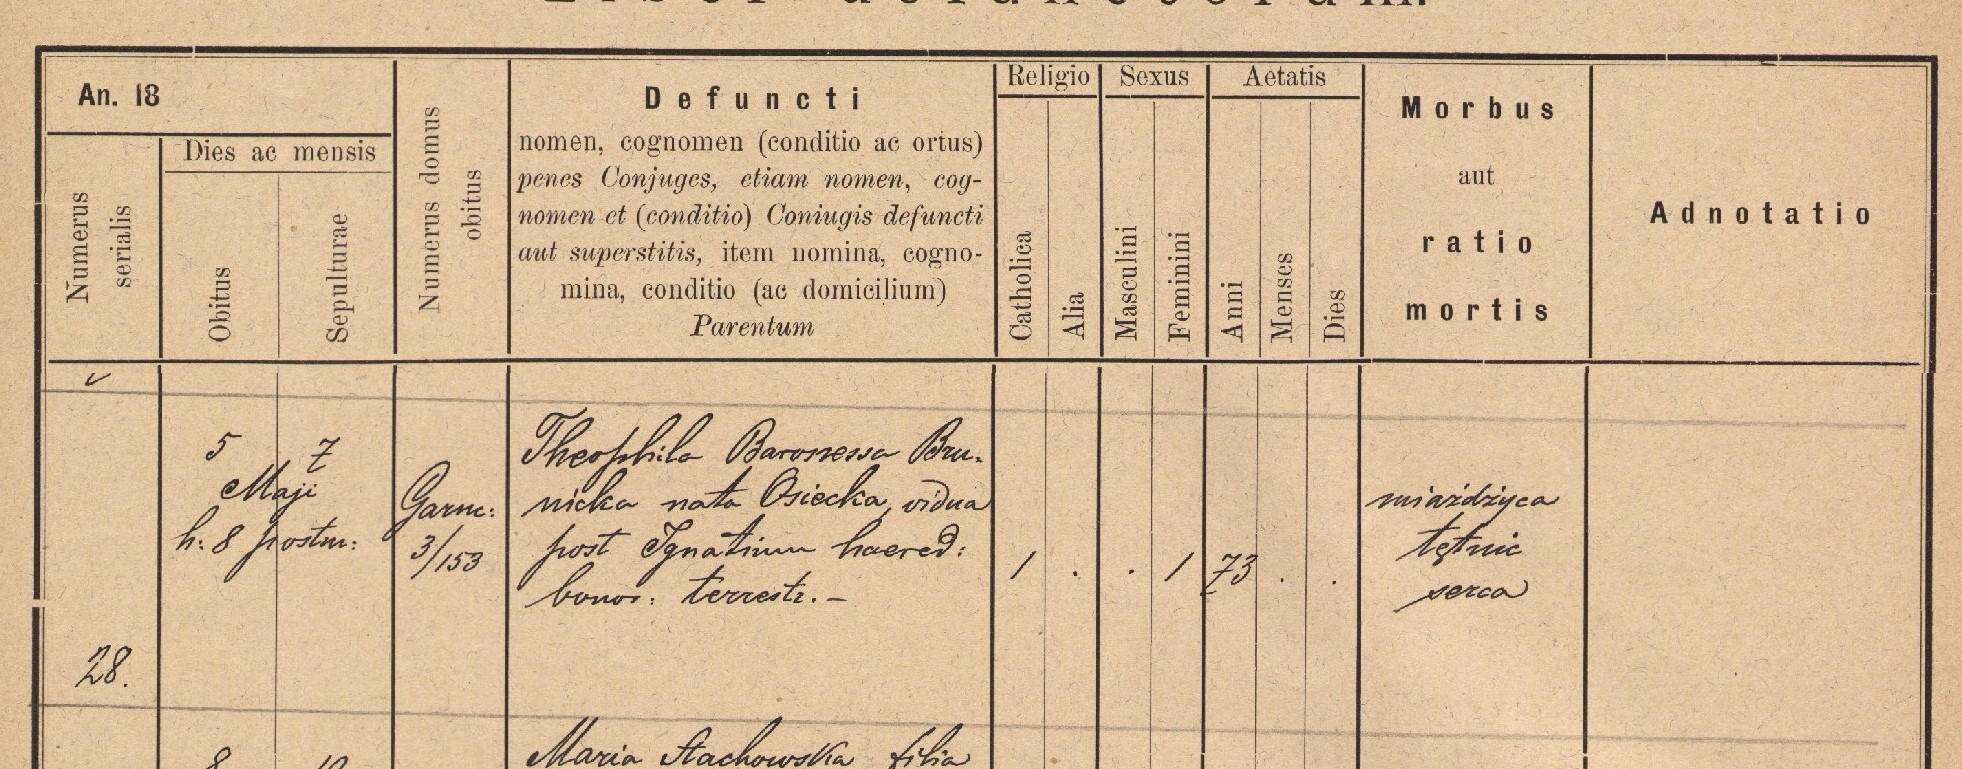 Liber defunctorum.
An. 18
Dies ac mensis
Numerus serialis
Obitus
Sepulturae
Numerus domus obitus
Defuncti
nomen, cognomen (conditio ac ortus)
penes Conjuges, etiam nomen, cog-
nomen et (conditio) Coniugis defuncti
aut superstitis, item nomina, cogno-
mina, conditio (ac domicilium)
Parentum
Religio
Catholica
Alia
Sexus
Masculini
Feminini
Aetatis
Anni
Menses
Dies
Morbus
aut
ratio
mortis
Adnotatio
28.
5 7
Maji
h: 8 postm:
Garnc:
3/153
Theophila Baronessa Bru-
nicka nata Osiecka, vidua
post Ignatium haered:
bonor: terrestr. -
1 . . 1 73 . .
miażdżyca
tętnic
serca
8 10
Maria Stachowska filia